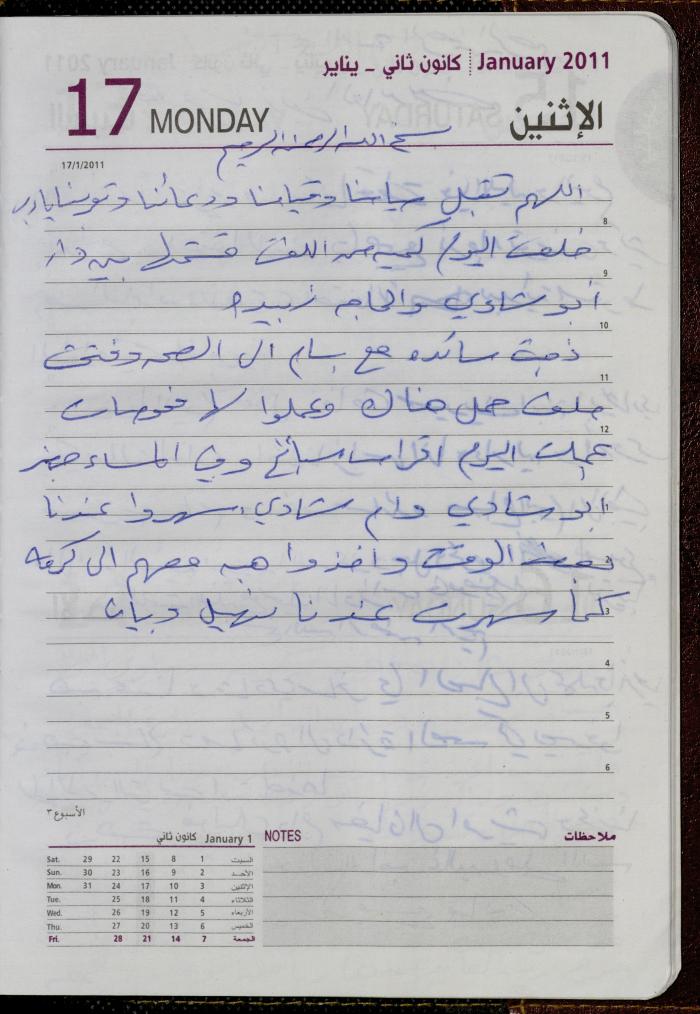 كانون ثاني - يناير January 2011
17 MONDAY الإثنين
بسم الله الرحمن الرحيم
17/1/2011
اللهم تقبل صيامنا وقيامنا ودعائنا وتوبتنا يارب
8
خلفت اليوم كمية من اللفت قسمتها بين دار
9
أبو شادي والحاجه زبيده
10
ذهبت سائده مع بسام الى الصحه وفتحت
11
ملف حمل هناك وعملوا لها فحوصات
12
عملت اليوم اقراص سبانخ وفي المساء حضر
1
ابو شادي وام شادي سهروا عندنا
2
الوقت واخذوا هبه معهم الى كرمه
3
كما سهرت عندنا نهيل وبيان
4
5
6
الأسبوع ٣
January 1 كانون ثاني
Sat. 29 22 15 8 1 السبت
Sun. 30 23 16 9 2 الأحد
Mon. 31 24 17 10 3 الإثنين
Tue. 25 18 11 4 الثلاثاء
Wed. 26 19 12 5 الأربعاء
Thu. 27 20 13 6 الخميس
Fri. 28 21 14 7 الجمعة
NOTES ملاحظات